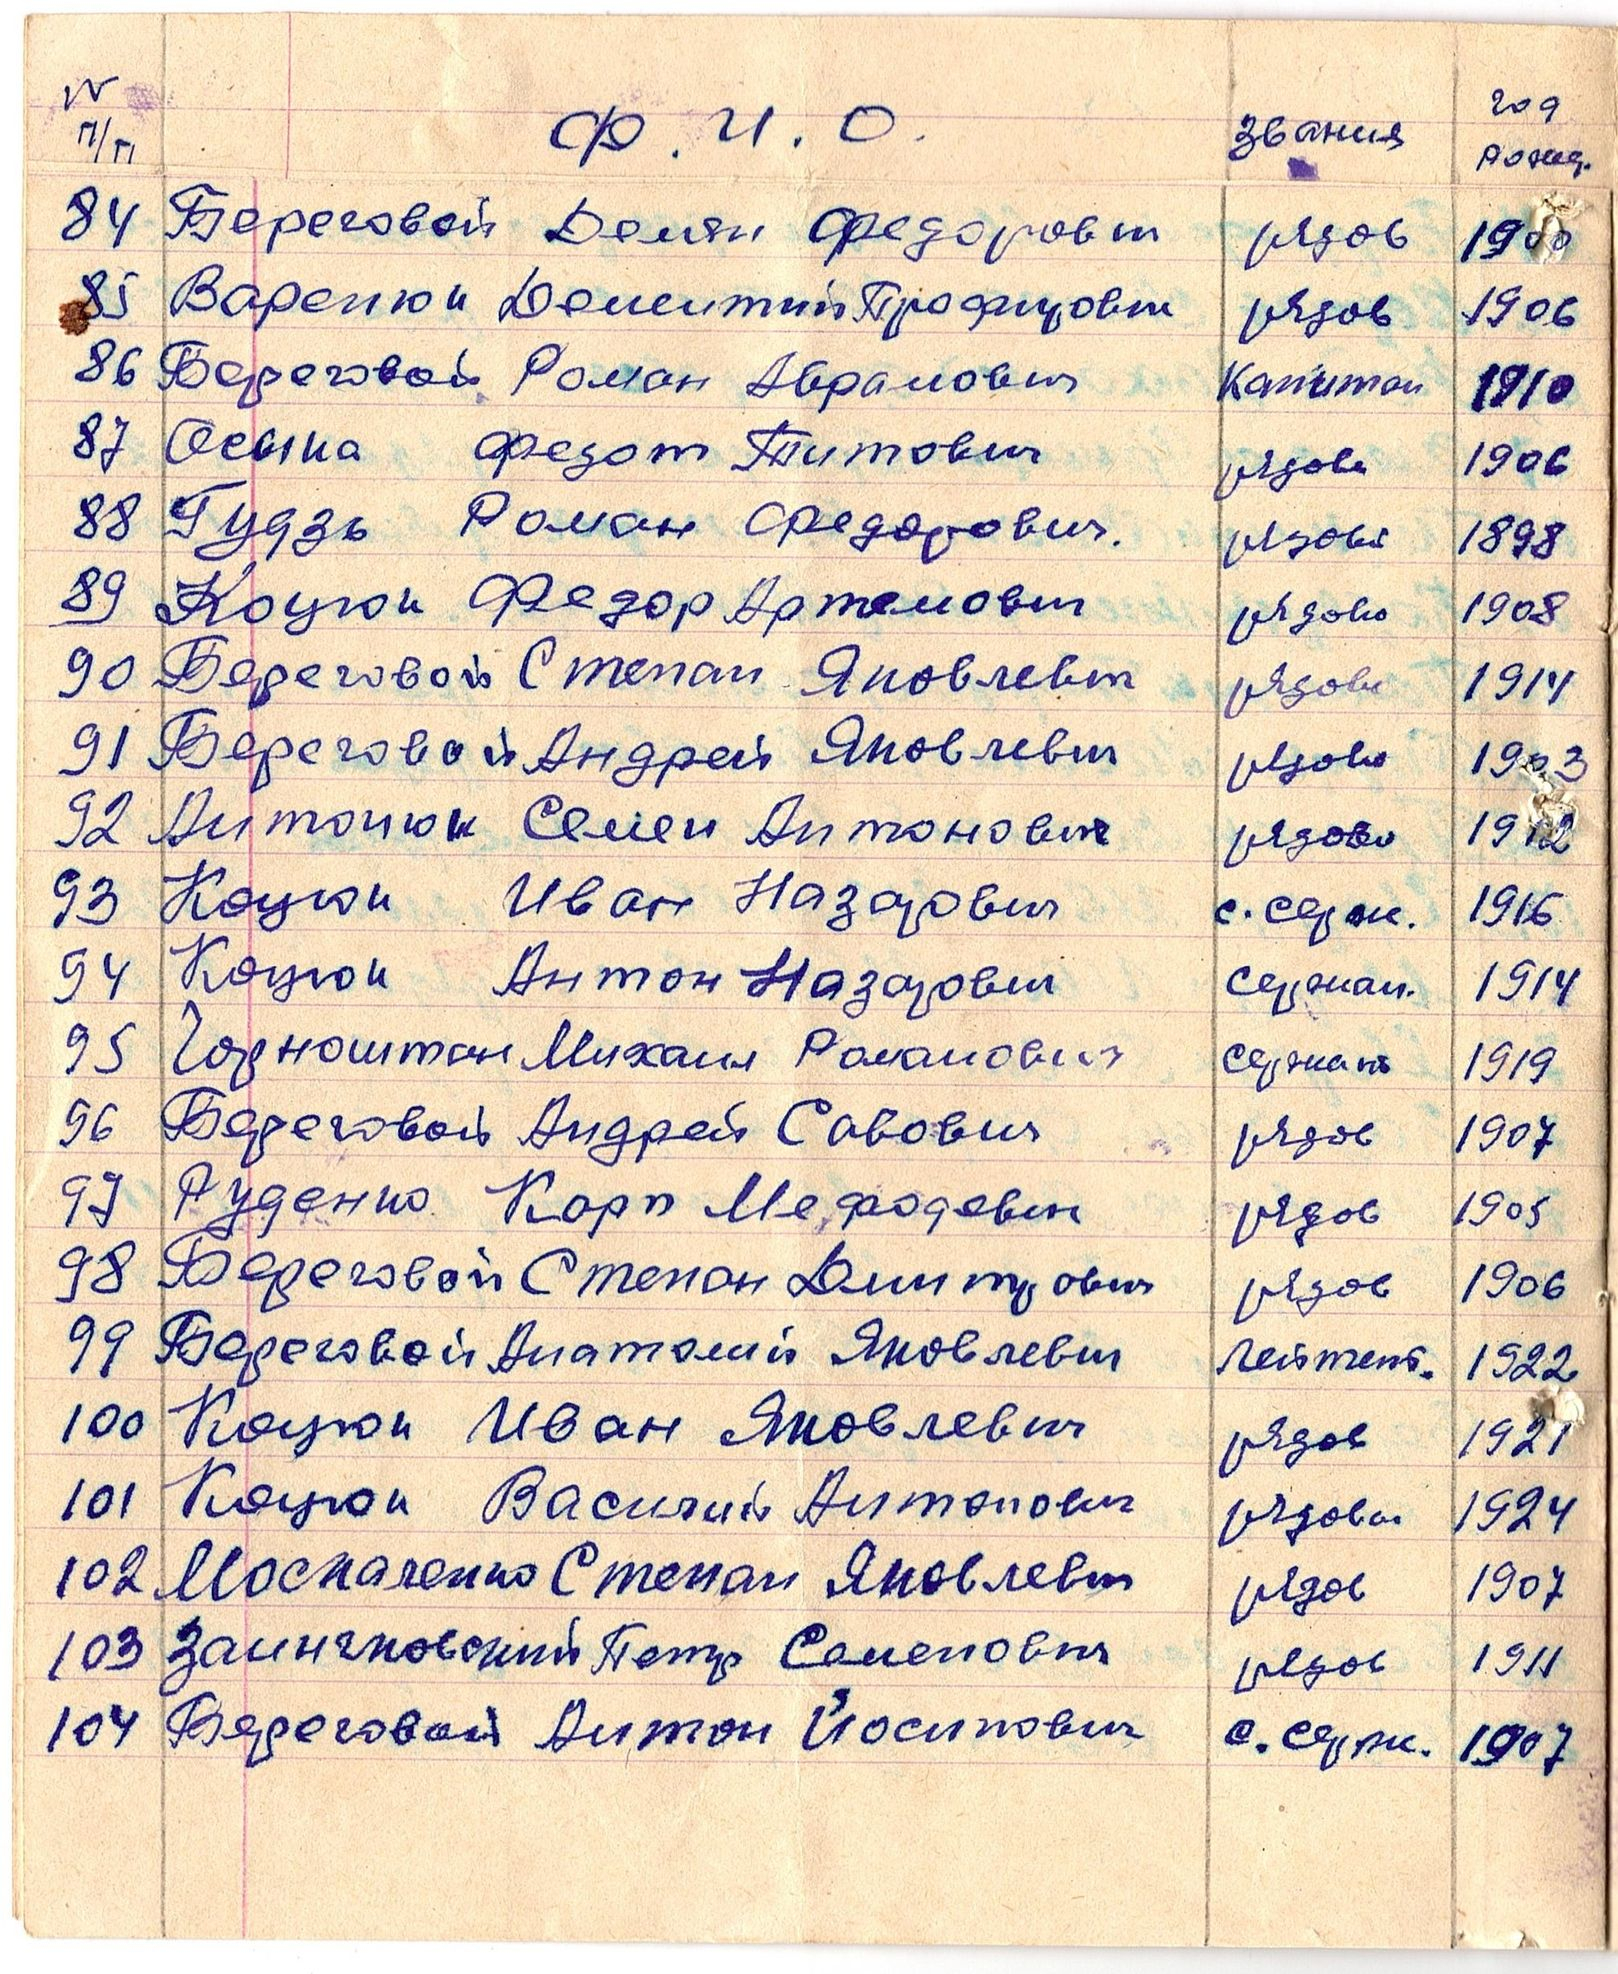 N п/п Ф. И. О. звания год рожд.
84 Береговой Демян Федорович рядов 1900
85 Варенюк Дементий Трофимович рядов 1906
86 Береговой Роман Аврамович Капитан 1910
87 Осыка Федот Титович рядово 1906
88 Гудзь Роман Федорович. рядово 1898
89 Коцюк Федор Артемович рядово 1908
90 Береговой Степан Яковлевич рядово 1914
91 Береговой Андрей Яковлевич рядово 1903
92 Антонюк Семен Антонович рядово 1912
93 Коцюк Иван Назарович с. серж. 1916
94 Коцюк Антон Назарович сержан. 1914
95 Горноштан Михаил Романович сержант 1919
96 Береговой Андрей Савович рядов 1907
97 Руденко Карп Мефодевич рядов 1905
98 Береговой Степан Дмитрович рядов 1906
99 Береговой Анатолий Яковлевич 1922
100 Коцюк Иван Яковлевич рядов 1921
101 Коцюк Василий Антонович рядово 1924
102 Москаленко Степан Яковлевич рядов 1907
103 Петр Семенович рядов 1911
104 Береговой Антон Йосипович с. серж. 1907